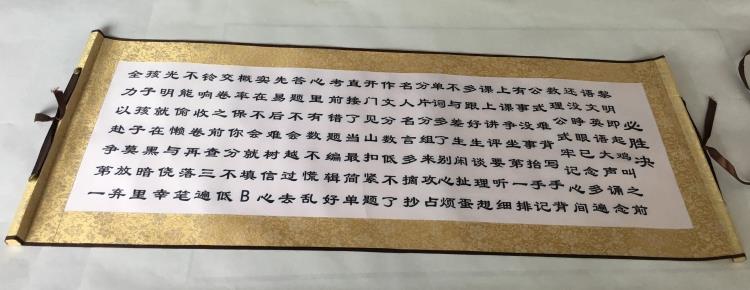 必胜决
黎明即起鸡叫之前
语文英语大声诵念
还没睁眼已念多遍
数理公式牢记心间
公式难背写手背
有事没事抬手记
上课争坐第一排
课上讲评要听细
多跟好生谈理想
不与差生闲扯蛋
单词多了别心烦
分片分组来攻占
名人名言多摘抄
作文分数低不了
开门见山扣紧题
直接了当最简单
考前错题编辑好
心里有数不慌乱
答题不会越过去
先易后难树信心
实在不会就填B
概率保你分不低
交卷之前查三遍
铃响收卷再落笔
不能偷懒与侥幸
光明就在黑暗里
孩子孩子莫放弃
全力以赴争第一